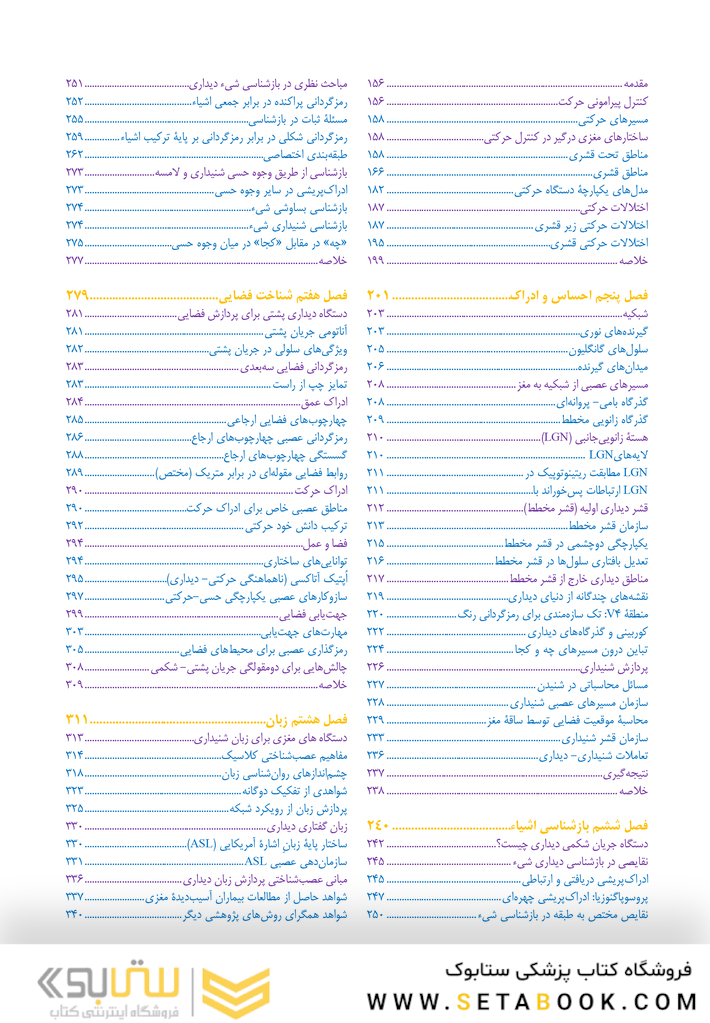 مقدمه ... ۱۵۶
کنترل پیرامونی حرکت ... ۱۵۶
مسیرهای حرکتی ... ۱۵۸
ساختارهای مغزی درگیر در کنترل حرکتی ... ۱۵۸
مناطق تحت قشری ... ۱۵۸
مناطق قشری ... ۱۶۶
مدل‌های یکپارچهٔ دستگاه حرکتی ... ۱۸۲
اختلالات حرکتی ... ۱۸۷
اختلالات حرکتی زیر قشری ... ۱۸۷
اختلالات حرکتی قشری ... ۱۹۵
خلاصه ... ۱۹۹
فصل پنجم احساس و ادراک ... ۲۰۱
شبکیه ... ۲۰۳
گیرنده‌های نوری ... ۲۰۳
سلول‌های گانگلیون ... ۲۰۵
میدان‌های گیرنده ... ۲۰۶
مسیرهای عصبی از شبکیه به مغز ... ۲۰۸
گذرگاه بامی- پروانه‌ای ... ۲۰۸
گذرگاه زانویی مخطط ... ۲۰۹
هستهٔ زانویی‌جانبی (LGN) ... ۲۱۰
لایه‌های LGN ... ۲۱۰
LGN مطابقت ریتینوتوپیک در ... ۲۱۱
LGN ارتباطات پس‌خوراند با ... ۲۱۱
قشر دیداری اولیه (قشر مخطط) ... ۲۱۲
سازمان قشر مخطط ... ۲۱۳
یکپارچگی دوچشمی در قشر مخطط ... ۲۱۵
تعدیل بافتاری سلول‌ها در قشر مخطط ... ۲۱۶
مناطق دیداری خارج از قشر مخطط ... ۲۱۷
نقشه‌های چندگانه از دنیای دیداری ... ۲۱۹
منطقهٔ V۴: تک سازه‌مندی برای رمزگردانی رنگ ... ۲۲۰
کوربینی و گذرگاه‌های دیداری ... ۲۲۲
تباین درون مسیرهای چه و کجا ... ۲۲۴
پردازش شنیداری ... ۲۲۶
مسائل محاسباتی در شنیدن ... ۲۲۷
سازمان مسیرهای عصبی شنیداری ... ۲۲۸
محاسبهٔ موقعیت فضایی توسط ساقهٔ مغز ... ۲۲۹
سازمان قشر شنیداری ... ۲۳۳
تعاملات شنیداری- دیداری ... ۲۳۶
نتیجه‌گیری ... ۲۳۷
خلاصه ... ۲۳۸
فصل ششم بازشناسی اشیاء ... ۲۴۰
دستگاه جریان شکمی دیداری چیست؟ ... ۲۴۲
نقایصی در بازشناسی دیداری شیء ... ۲۴۵
ادراک‌پریشی دریافتی و ارتباطی ... ۲۴۵
پروسوپاگنوزیا: ادراک‌پریشی چهره‌ای ... ۲۴۷
نقایص مختص به طبقه در بازشناسی شیء ... ۲۵۰
مباحث نظری در بازشناسی شیء دیداری ... ۲۵۱
رمزگردانی پراکنده در برابر جمعی اشیاء ... ۲۵۲
مسئلهٔ ثبات در بازشناسی ... ۲۵۵
رمزگردانی شکلی در برابر رمزگردانی بر پایهٔ ترکیب اشیاء ... ۲۵۹
طبقه‌بندی اختصاصی ... ۲۶۲
بازشناسی از طریق وجوه حسی شنیداری و لامسه ... ۲۷۳
ادراک‌پریشی در سایر وجوه حسی ... ۲۷۳
بازشناسی بساوشی شیء ... ۲۷۴
بازشناسی شنیداری شیء ... ۲۷۴
«چه» در مقابل «کجا» در میان وجوه حسی ... ۲۷۵
خلاصه ... ۲۷۷
فصل هفتم شناخت فضایی ... ۲۷۹
دستگاه دیداری پشتی برای پردازش فضایی ... ۲۸۱
آناتومی جریان پشتی ... ۲۸۱
ویژگی‌های سلولی در جریان پشتی ... ۲۸۲
رمزگردانی فضایی سه‌بعدی ... ۲۸۳
تمایز چپ از راست ... ۲۸۳
ادراک عمق ... ۲۸۴
چهارچوب‌های فضایی ارجاعی ... ۲۸۵
رمزگردانی عصبی چهارچوب‌های ارجاع ... ۲۸۶
گسستگی چهارچوب‌های ارجاع ... ۲۸۸
روابط فضایی مقوله‌ای در برابر متریک (مختص) ... ۲۸۹
ادراک حرکت ... ۲۹۰
مناطق عصبی خاص برای ادراک حرکت ... ۲۹۰
ترکیب دانش خود حرکتی ... ۲۹۲
فضا و عمل ... ۲۹۴
توانایی‌های ساختاری ... ۲۹۴
اُپتیک آتاکسی (ناهماهنگی حرکتی- دیداری) ... ۲۹۵
سازوکارهای عصبی یکپارچگی حسی-حرکتی ... ۲۹۷
جهت‌یابی فضایی ... ۲۹۹
مهارت‌های جهت‌یابی ... ۳۰۳
رمزگذاری عصبی برای محیط‌های فضایی ... ۳۰۵
چالش‌هایی برای دومقولگی جریان پشتی- شکمی ... ۳۰۸
خلاصه ... ۳۰۹
فصل هشتم زبان ... ۳۱۱
دستگاه های مغزی برای زبان شنیداری ... ۳۱۳
مفاهیم عصب‌شناختی کلاسیک ... ۳۱۴
چشم‌اندازهای روان‌شناسی زبان ... ۳۱۸
شواهدی از تفکیک دوگانه ... ۳۲۳
پردازش زبان از رویکرد شبکه ... ۳۲۵
زبان گفتاری دیداری ... ۳۳۰
ساختار پایهٔ زبانِ اشارهٔ آمریکایی (ASL) ... ۳۳۰
سازمان‌دهی عصبی ASL ... ۳۳۱
مبانی عصب‌شناختی پردازش زبان دیداری ... ۳۳۶
شواهد حاصل از مطالعات بیماران آسیب‌دیدهٔ مغزی ... ۳۳۷
شواهد همگرای روش‌های پژوهشی دیگر ... ۳۴۰
فروشگاه کتاب پزشکی ستابوک
WWW.SETABOOK.COM
ستابوک
فروشگاه اینترنتی کتاب